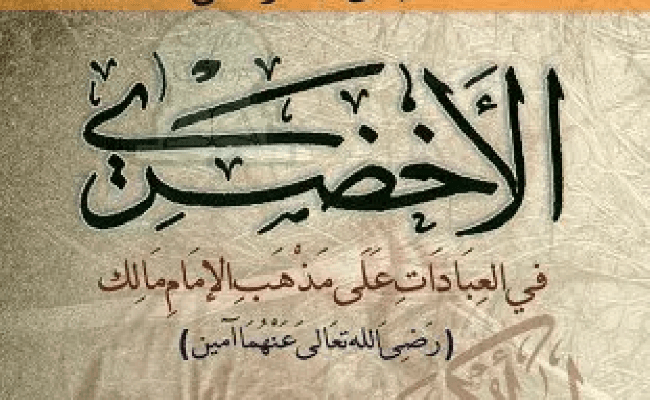 الأَخضَرِي
في العِبَادَاتِ عَلَى مَذْهَبِ الإِمَامِ مَالِك
(رَضِيَ الله تَعَالَى عَنْهُمَا آمين)